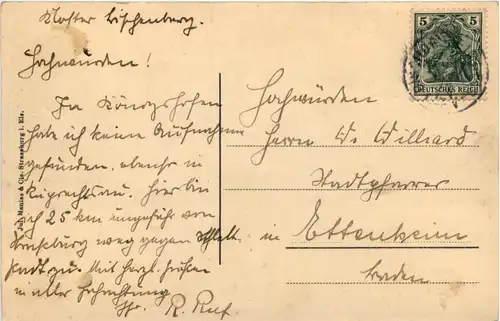 Kloster Bischenberg.
Hochwürden!
In Königshofen
hab ich keine Aufnahme
gefunden, ebenso in
Ruprechtsau. Hier bin
ich 25 km ungefähr von
Straßburg weg gegen Schlett-
stadt zu. Mit herzl. Grüßen
in aller Hochachtung
R. Ruf.
Jul. Manias & Cie. Strassburg i. Els.
5 5
DEUTSCHES REICH
Hochwürden
Herrn W. Williard
Stadtpfarrer
in Ettenheim
Baden